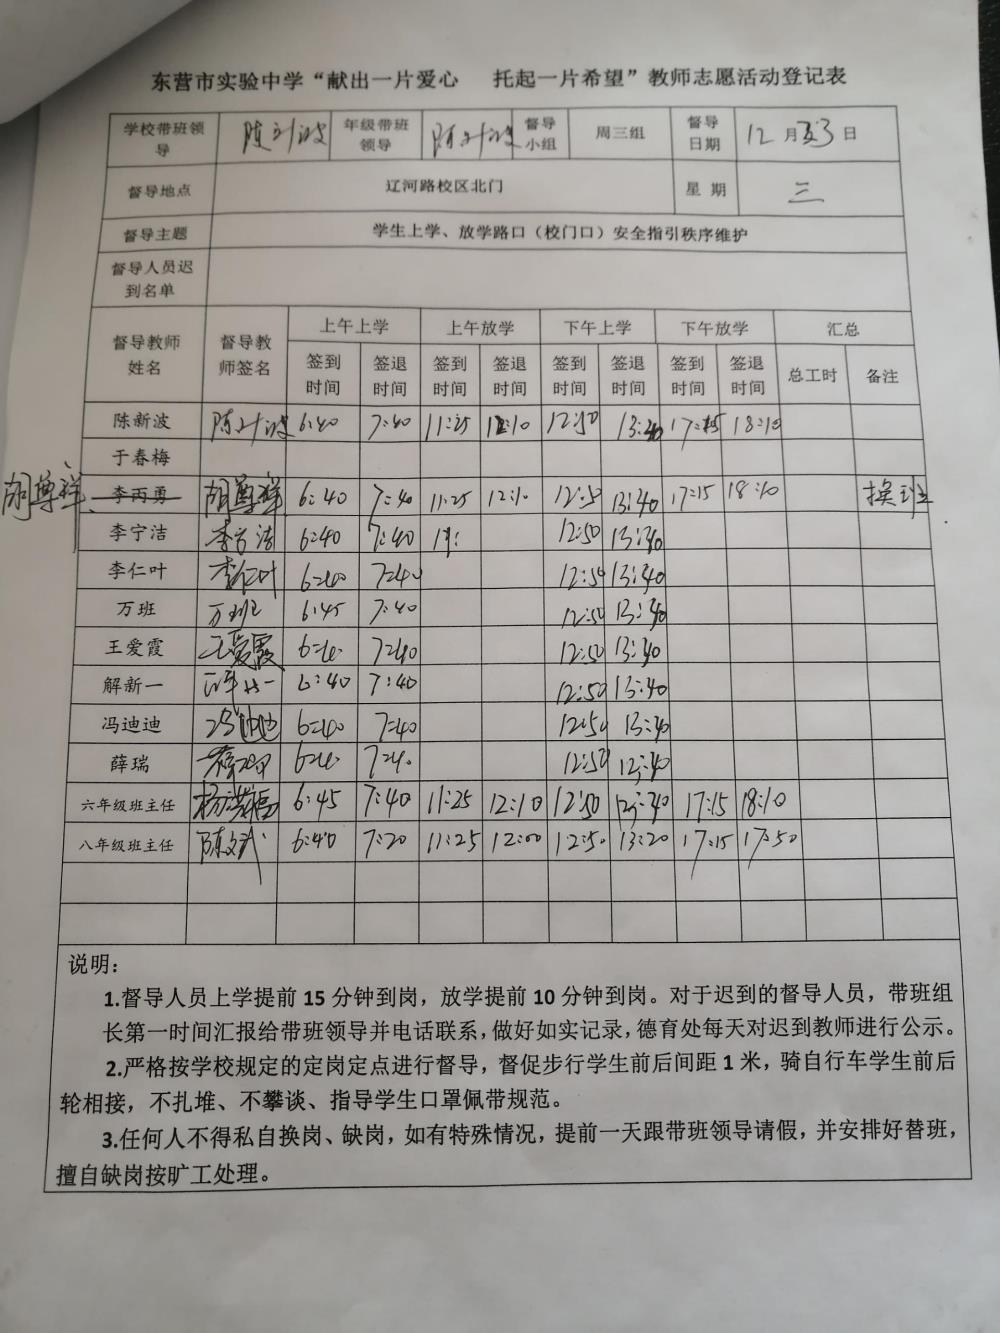 东营市实验中学“献出一片爱心 托起一片希望”教师志愿活动登记表
学校带班领导 陈新波 年级带班领导 陈新波 督导小组 周三组 督导日期 12月 3日
督导地点 辽河路校区北门 星 期 三
督导主题 学生上学、放学路口（校门口）安全指引秩序维护
督导人员迟到名单
督导教师姓名 督导教师签名 上午上学 上午放学 下午上学 下午放学 汇总
签到时间 签退时间 签到时间 签退时间 签到时间 签退时间 签到时间 签退时间 总工时 备注
陈新波 陈新波 6:40 7:40 11:25 12:10 12:50 13:40 17:15 18:10
于春梅
胡尊祥 李丙勇 胡尊祥 6:40 7:40 11:25 12:10 12:50 13:40 17:15 18:10 换班
李宁洁 李宁洁 6:40 7:40 12:50 13:40
李仁叶 李仁叶 6:40 7:40 12:50 13:40
万班 万班 6:45 7:40 12:50 13:40
王爱霞 王爱霞 6:40 7:40 12:50 13:40
解新一 解新一 6:40 7:40 12:50 13:40
冯迪迪 冯迪迪 6:40 7:40 12:50 13:40
薛瑞 薛瑞 6:40 7:40 12:50 13:40
六年级班主任 6:45 7:40 11:25 12:10 12:50 13:40 17:15 18:10
八年级班主任 陈文武 6:40 7:20 11:25 12:00 12:50 13:20 17:15 17:50
说明：
1.督导人员上学提前 15 分钟到岗，放学提前 10 分钟到岗。对于迟到的督导人员，带班组
长第一时间汇报给带班领导并电话联系，做好如实记录，德育处每天对迟到教师进行公示。
2.严格按学校规定的定岗定点进行督导，督促步行学生前后间距 1 米，骑自行车学生前后
轮相接，不扎堆、不攀谈、指导学生口罩佩带规范。
3.任何人不得私自换岗、缺岗，如有特殊情况，提前一天跟带班领导请假，并安排好替班，
擅自缺岗按旷工处理。